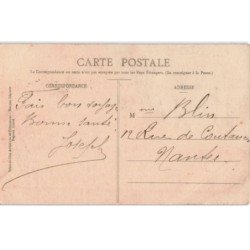 CARTE POSTALE
La Correspondance au recto n'est pas acceptée par tous les Pays Étrangers. (Se renseigner à la Poste)
CORRESPONDANCE
ADRESSE
Fais bon voyage
Bonne santé
Joseph
Mme Blin
12 Rue de Coutances
Nantes